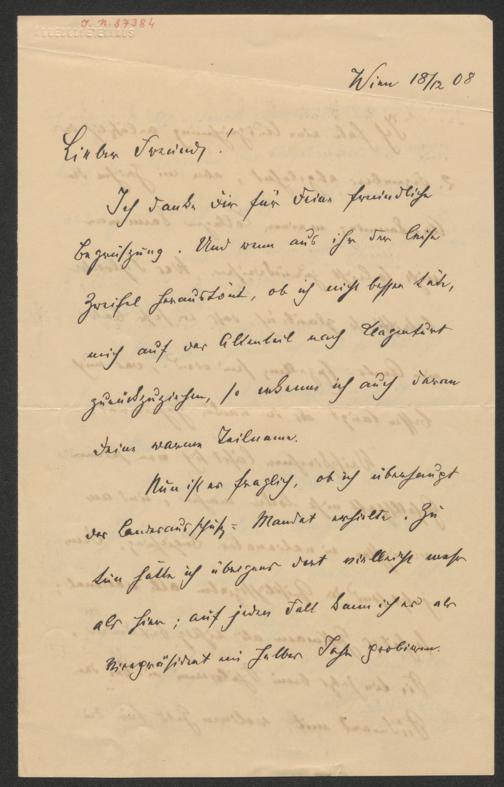 J. N. 87384
Wien 18/12 08
Lieber Freund!
Ich danke Dir für Deine freundliche
Begrüszung. Und wenn aus ihr der leise
Zweifel heraustönt, ob ich nicht besser täte,
mich auf das Altenteil nach Klagenfurt
zurückzuziehen, so erkenne ich auch daran
Deine warme Teilname.
Nun ist es fraglich, ob ich überhaupt
das Landesausschuß= Mandat erhielte. Zu
tun hätte ich übrigens dort vielleicht mehr
als hier; auf jeden Fall kann ich es als
Vizepräsident ein halbes Jahr probieren.